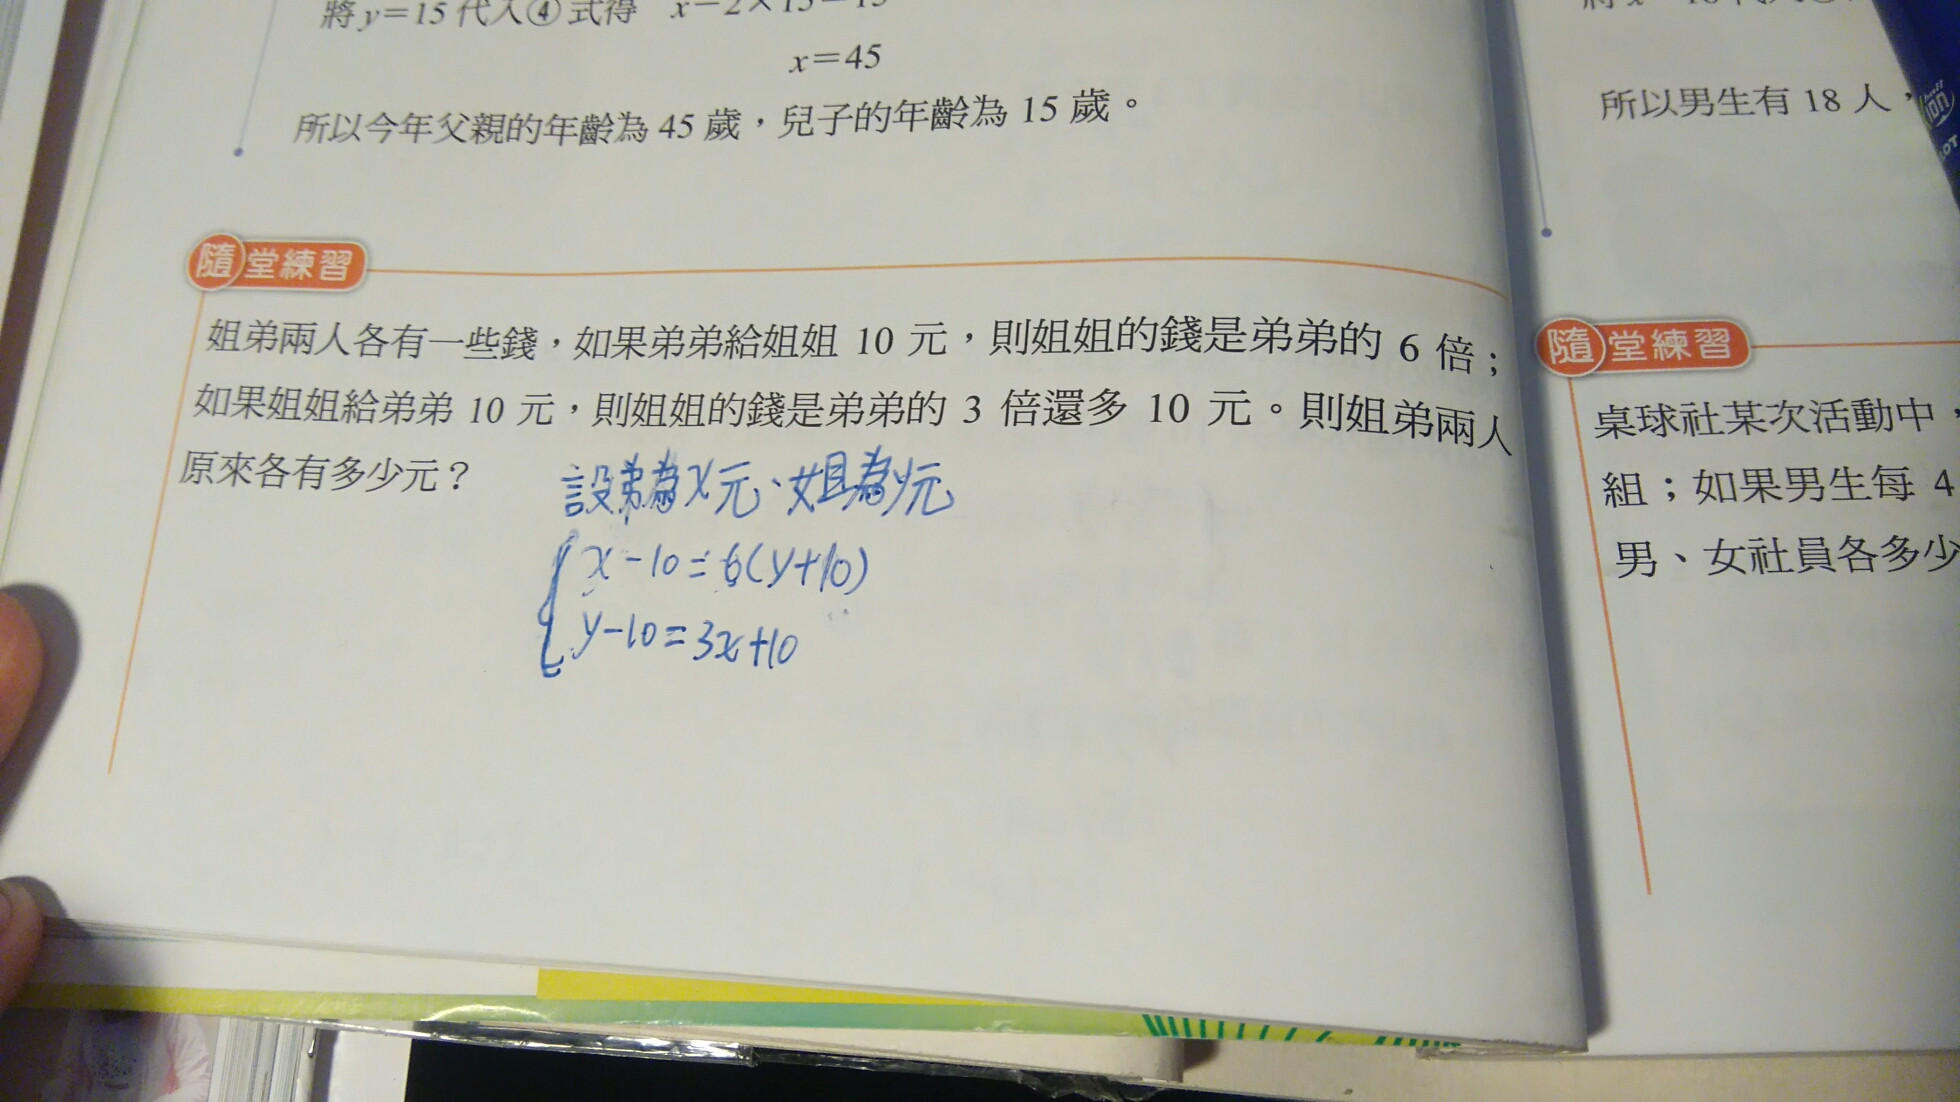 將y=15代入④式得 x-2×15=15
x=45
所以今年父親的年齡為45歲，兒子的年齡為15歲。
隨堂練習
姐弟兩人各有一些錢，如果弟弟給姐姐 10 元，則姐姐的錢是弟弟的 6 倍；
如果姐姐給弟弟 10 元，則姐姐的錢是弟弟的 3 倍還多 10 元。則姐弟兩人
原來各有多少元？
設弟為x元、姐為y元
x-10=6(y+10)
y-10=3x+10
所以男生有 18 人，
隨堂練習
桌球社某次活動中，
組；如果男生每 4
男、女社員各多少